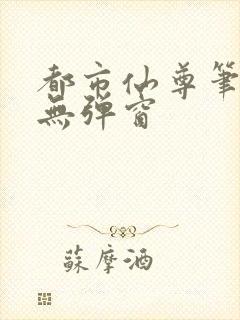 都市仙尊筆
無彈窗
蘇摩酒